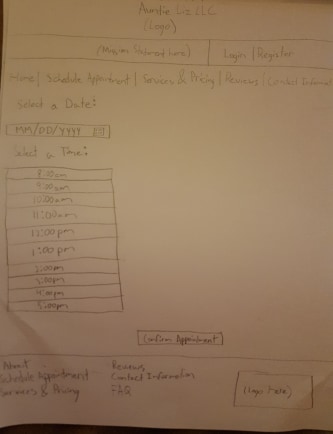 Auntie Liz LLC
(Logo)
(Mission Statement here)
Login | Register
Home | Schedule Appointment | Services & Pricing | Reviews | Contact Information
Select a Date:
MM/DD/YYYY
Select a Time:
8:00am
9:00am
10:00am
11:00am
12:00pm
1:00pm
2:00pm
3:00pm
4:00pm
5:00pm
Confirm Appointment
About
Schedule Appointment
Services & Pricing
Reviews
Contact Information
FAQ
(Logo)